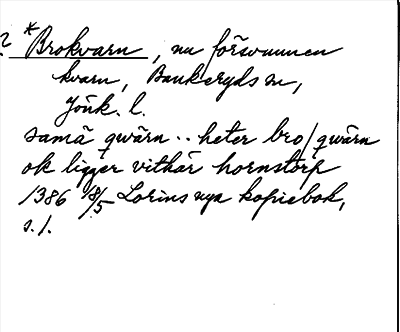 ? * Brokvarn, nu försvunnen
kvarn, Bankeryds sn,
Jönk. l.
samä qwärn .. heter bro/qwärn
ok ligger vitkär hornstorp
1386 18/5 Lorins nya kopiebok,
s. 1.